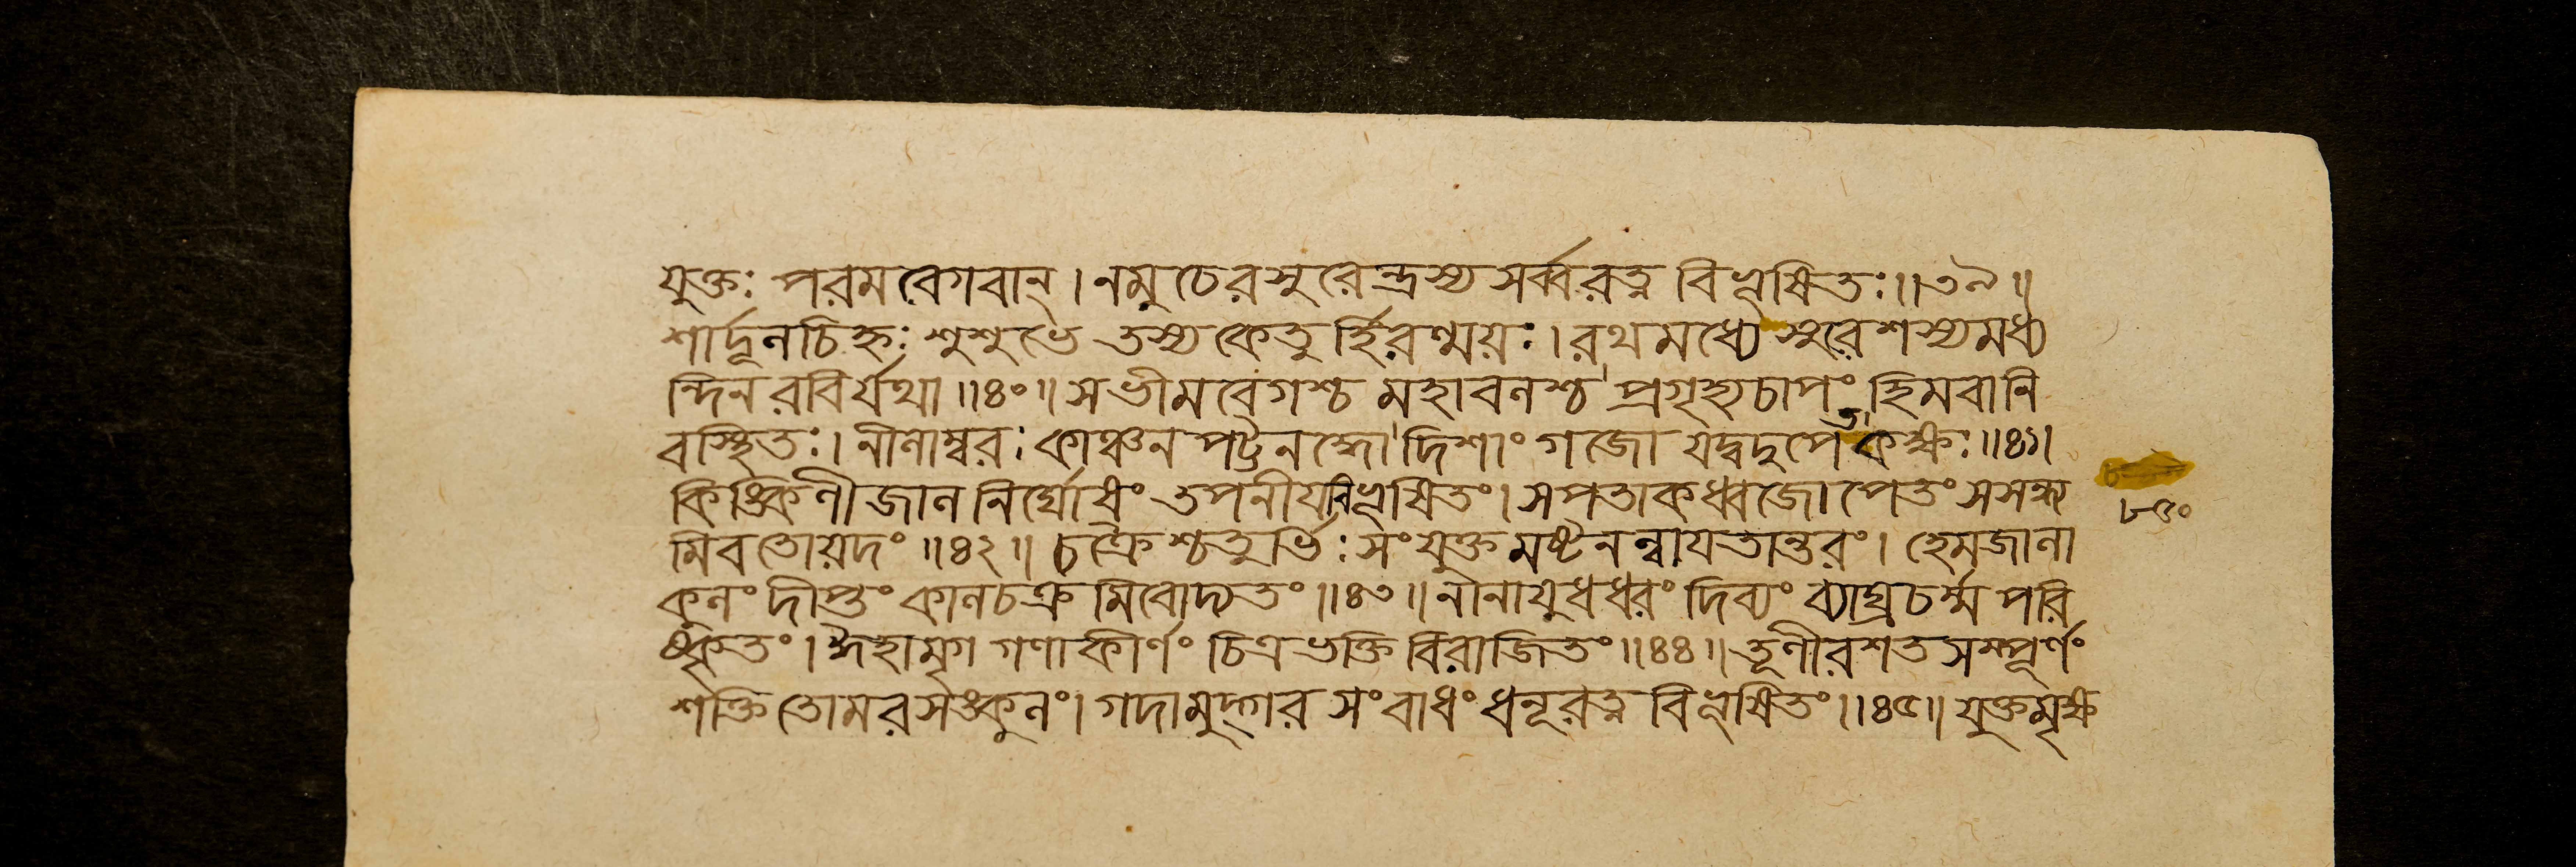 যুক্তঃ পরমবেগবান্। নমুচেরসুরেন্দ্রস্য সর্ব্বরত্ন বিভূষিতঃ॥৩৯॥
শার্দূলচিহ্নঃ শুশুভে তস্যকেতুর্হিরণ্ময়ঃ। রথমধ্যে সুরেশস্যমধ্য
ন্দিনরবির্যথা॥৪০॥ সভীমবেগশ্চ মহাবলশ্চ প্রগৃহ্যচাপং হিমবানি
বস্থিতঃ। নীলাম্বরঃ কাঞ্চনপট্টনদ্ধো দিশাং গজো যদ্বদুপেতকক্ষঃ॥৪১॥
কিঙ্কিণীজালনির্ঘোষং তপনীয়বিভূষিতং। সপতাকধ্বজোপেতং সসন্ধ্য
মিবতোয়দং॥৪২॥ চক্রৈশ্চতুর্ভিঃ সংযুক্তমষ্টনল্বায়তান্তরং। হেমজালা
কুলং দীপ্তং কালচক্রমিবোদ্যতং॥৪৩॥ নানায়ুধধরং দিব্যং ব্যাঘ্রচর্ম্মপরি
ষ্কৃতং। ঈহামৃগগণাকীর্ণং চিত্রভক্তিবিরাজিতং॥৪৪॥ তূণীরশতসম্পূর্ণং
শক্তিতোমরসঙ্কুলং। গদামুদ্গরসংবাধং ধনূরত্নবিভূষিতং॥৪৫॥ যুক্তমৃক্ষ